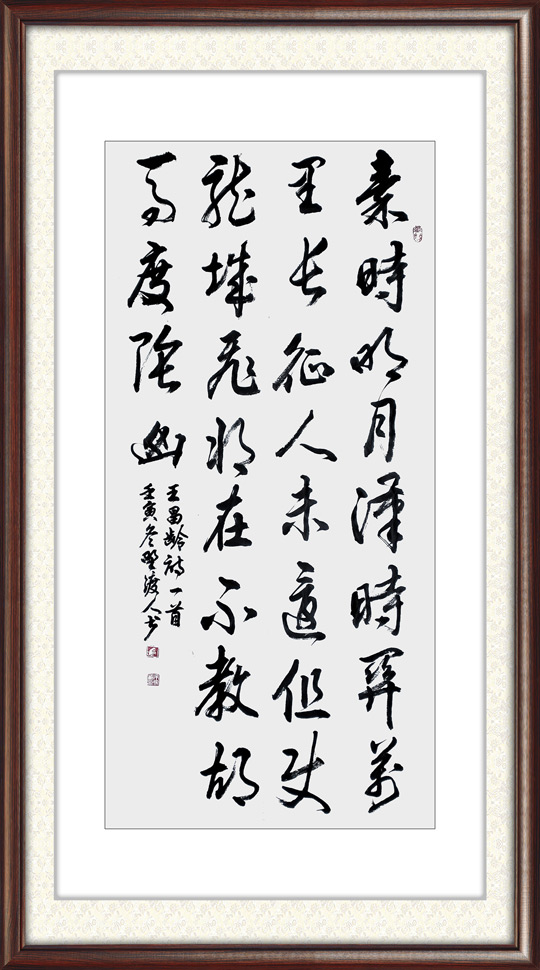 秦時明月漢時関萬
里长征人未還但使
龍城飛将在不教胡
馬度陰幽
王昌齡詩一首
壬寅冬野渡人书